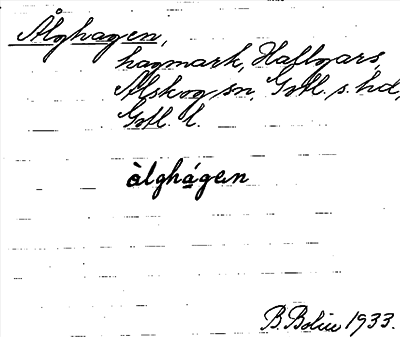 Ålghagen,
hagmark, Hallgars,
Alskog sn, Gotl. s. hd,
Gotl. l.
àlghágen
B. Bolin 1933.